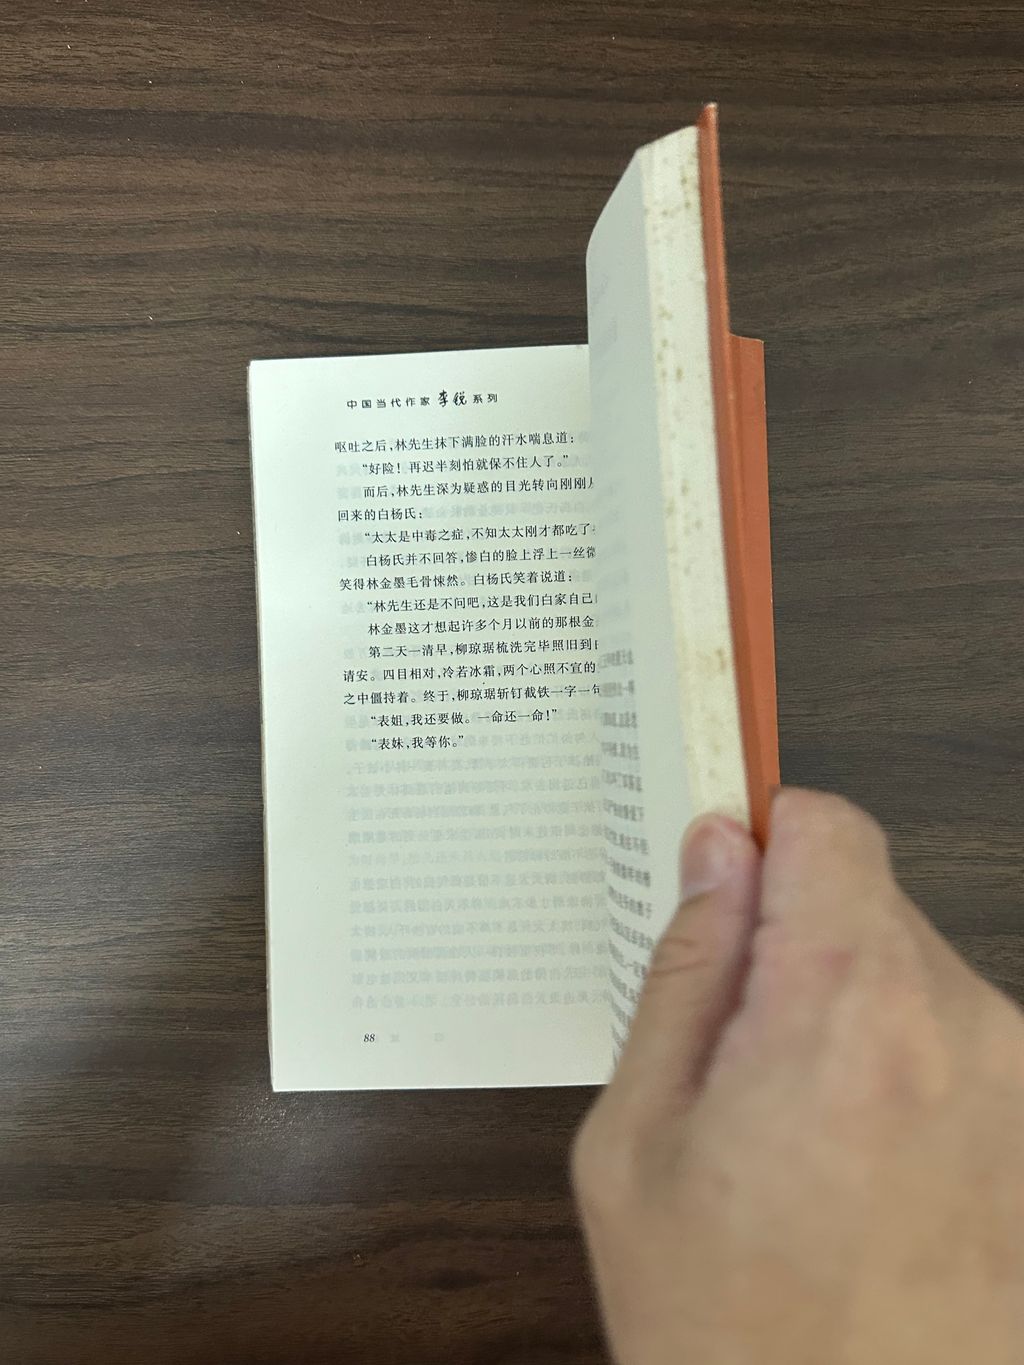 中国当代作家李锐系列
呕吐之后，林先生抹下满脸的汗水喘息道：
“好险！再迟半刻怕就保不住人了。”
而后，林先生深为疑惑的目光转向刚刚
回来的白杨氏：
“太太是中毒之症，不知太太刚才都吃了
白杨氏并不回答，惨白的脸上浮上一丝微
笑得林金墨毛骨悚然。白杨氏笑着说道：
“林先生还是不问吧，这是我们白家自己
林金墨这才想起许多个月以前的那根金
第二天一清早，柳琼琚梳洗完毕照旧到
请安。四目相对，冷若冰霜，两个心照不宣的
之中僵持着。终于，柳琼琚斩钉截铁一字一句
“表姐，我还要做。一命还一命！”
“表妹，我等你。”
88